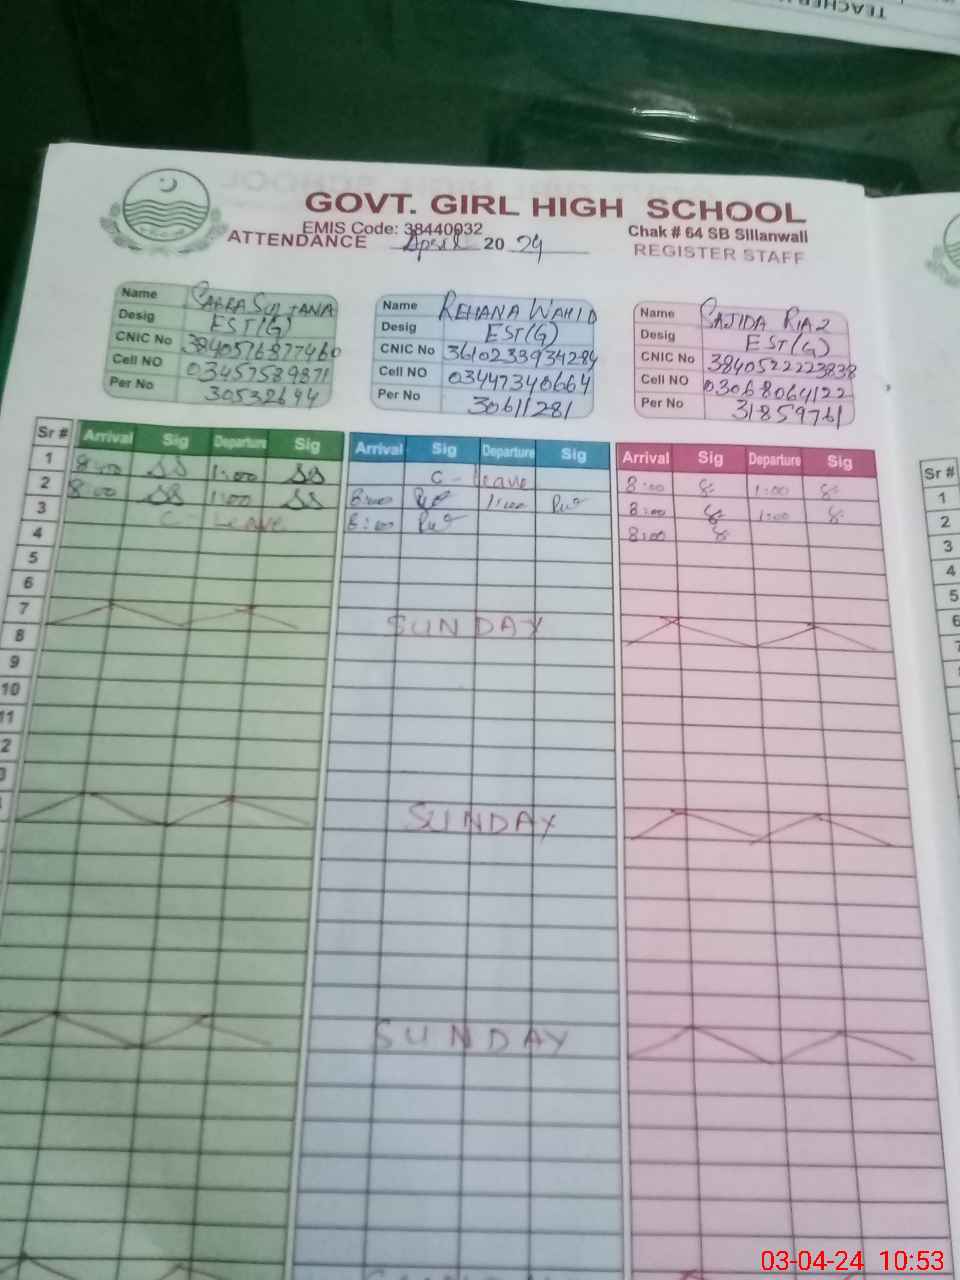 TEACHER
GOVT. GIRL HIGH SCHOOL
EMIS Code: 38440932
Chak # 64 SB Sillanwali
ATTENDANCE April 2024
REGISTER STAFF
Name SAFRA SULTANA
Desig EST(G)
CNIC No 3840576877460
Cell NO 03457589871
Per No 30532694
Name REHANA WAHID
Desig EST(G)
CNIC No 3610233934284
Cell NO 03447340664
Per No 30611281
Name SAJIDA RIAZ
Desig EST(G)
CNIC No 3840522223838
Cell NO 03068064122
Per No 31859761
Sr # Arrival Sig Departure Sig Arrival Sig Departure Sig Arrival Sig Departure Sig Sr #
1 8:00 SS 1:00 SS C- Leave 8:00 1:00 1
2 8:00 SS 1:00 SS 8:00 1:00 8:00 1:00 2
3 C- Leave 8:00 8:00 3
4 4
5 5
6 6
7 SUNDAY 7
8
9
10
11
2
SUNDAY
SUNDAY
03-04-24 10:53